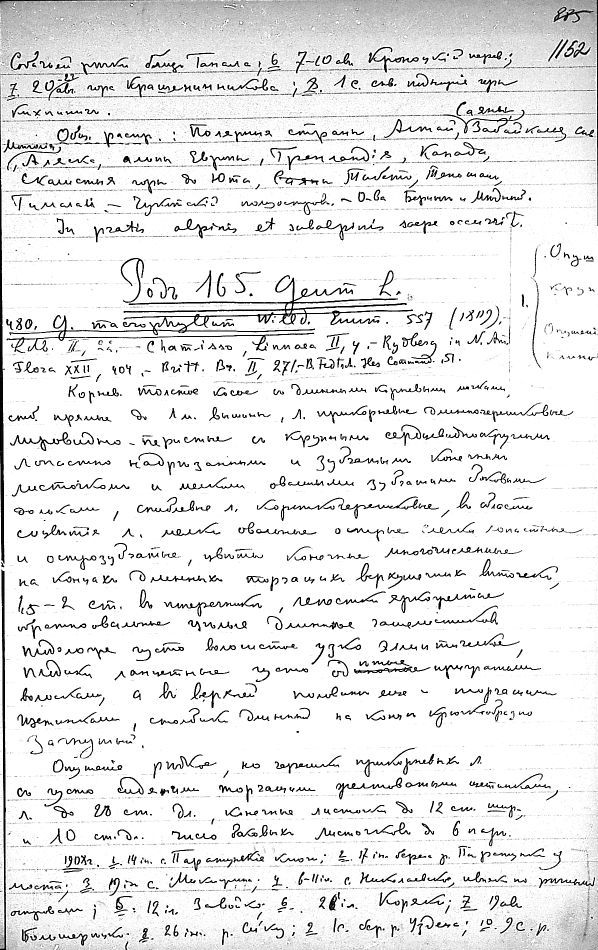 885
1152
Собачьей речки близъ Тапала; 6 7-10 ав. Кроноцкий перев.;
7 20-27 ав. гора Крашенинникова; 8. 1 с.
Общ. распр.: Полярныя страны, Алтай, Саяны, Забайкалье
Монголия, Аляска, альпы Европы, Гренландія, Канада,
Скалистыя горы до Юта, Тибетъ, Тяньшан,
Гималаи – Чукотскій полуостров. – О-ва Беринга и Мѣдный.
In pratis alpinis et subalpinis saepe occurrit.
Родъ 165. Geum L.
480. G. macrophyllum Willd. Enum. 557 (1809).-
Ldb. II, 22.- Chamisso, Linnaea II, 4.- Rydberg in N. Am.
Flora XXII, 404.- Britt. Br. II, 271.- B. Fedtsch. Fles Command. 51.
1.
Опуш
круп
Опушені
Корнев. толстое косое съ длинными корневыми мочками,
стб. прямые до 1 м. вышины, л. прикорневые длинночерешковые
лировидно-перистые съ крупным сердцевиднокруглым
лопастно надрѣзанным и зубчатым конечным
листочком и мелкими овальными зубчатыми боковыми
дольками, стеблевые л. короткочерешковые, въ области
соцвѣтія л. мелкие овальные острые лопастные
и острозубчатые, цвѣты конечные многочисленные
на концах длинных торчащих верхушечных вѣточек,
1,5-2 ст. въ поперечникѣ, лепестки яркожелтые
обратноовальные цѣлые длиннее чашелистиков
плодоложе густо волосистое узко эллиптическое,
плодики ланцетные густо одѣтые прижатыми
волосками, а въ верхней половинѣ еще и торчащими
щетинками, столбик длинный на концѣ крючкообразно
загнутый.
Опушеніе рѣдкое, но черешки прикорневых л.
съ густо сидящими торчащими желтоватыми щетинками,
л. до 28 ст. дл., конечные листочки до 12 ст. шир.
и 10 ст. дл. число боковых листочков до 6 пар.
1908 г. 1. 14 іюн. с. Паратунскіе ключи; 2. 17 іюн. берега р. Паратунки у
моста; 3 19 іюн с. Микижина; 4 с. Николаевка,
5. 12 іл. Завойко; 6. 26 іл. Коряки; 7 19 ав
Большерѣцк; 8. 26 ав. р. 9. 1 с. бер. р. Уздеца; 10. 9 с. р.